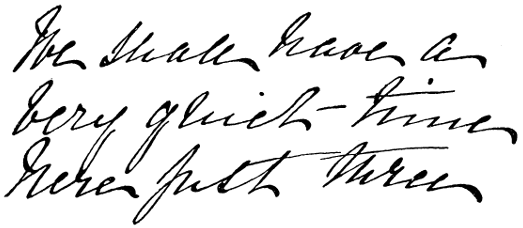 We shall have a
very quiet time
here just three